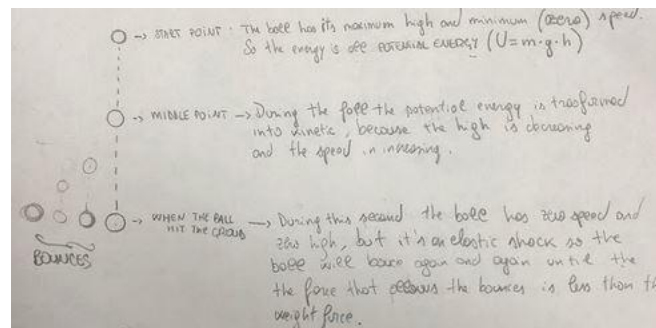 → START POINT : The ball has its maximum high and minimum (zero) speed.
So the energy is all POTENTIAL ENERGY (U=m·g·h)
→ MIDDLE POINT → During the fall the potential energy is trasformed
into kinetic, because the high is decreasing
and the speed in increasing.
→ WHEN THE BALL
HIT THE GROUD
→ During this second the ball has zero speed and
zero high, but it's an elastic shock so the
ball will bounce again and again until the
the force that allows the bounces is less than th
weight force.
BOUNCES